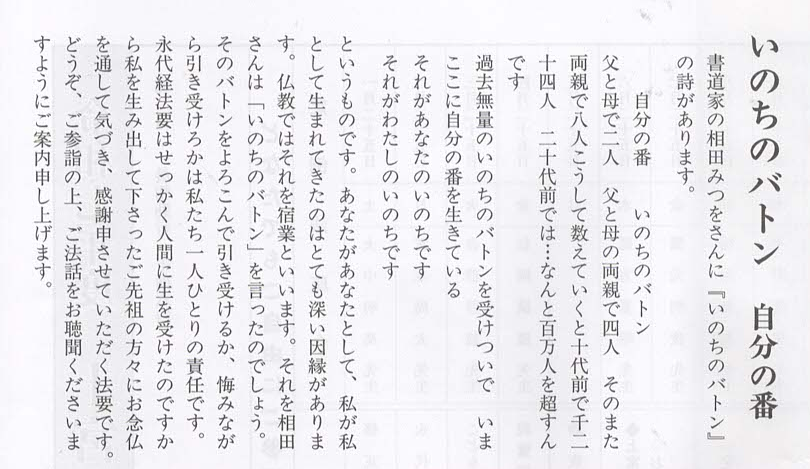 いのちのバトン　自分の番
書道家の相田みつをさんに『いのちのバトン』
の詩があります。
自分の番　いのちのバトン
父と母で二人　父と母の両親で四人　そのまた
両親で八人こうして数えていくと十代前で千二
十四人　二十代前では…なんと百万人を超すん
です
過去無量のいのちのバトンを受けついで　いま
ここに自分の番を生きている
それがあなたのいのちです
それがわたしのいのちです
というものです。あなたがあなたとして、私が私
として生まれてきたのはとても深い因縁がありま
す。仏教ではそれを宿業といいます。それを相田
さんは「いのちのバトン」を言ったのでしょう。
そのバトンをよろこんで引き受けるか、悔みなが
ら引き受けろかは私たち一人ひとりの責任です。
永代経法要はせっかく人間に生を受けたのですか
ら私を生み出して下さったご先祖の方々にお念仏
を通して気づき、感謝申させていただく法要です。
どうぞ、ご参詣の上、ご法話をお聴聞くださいま
すようにご案内申し上げます。